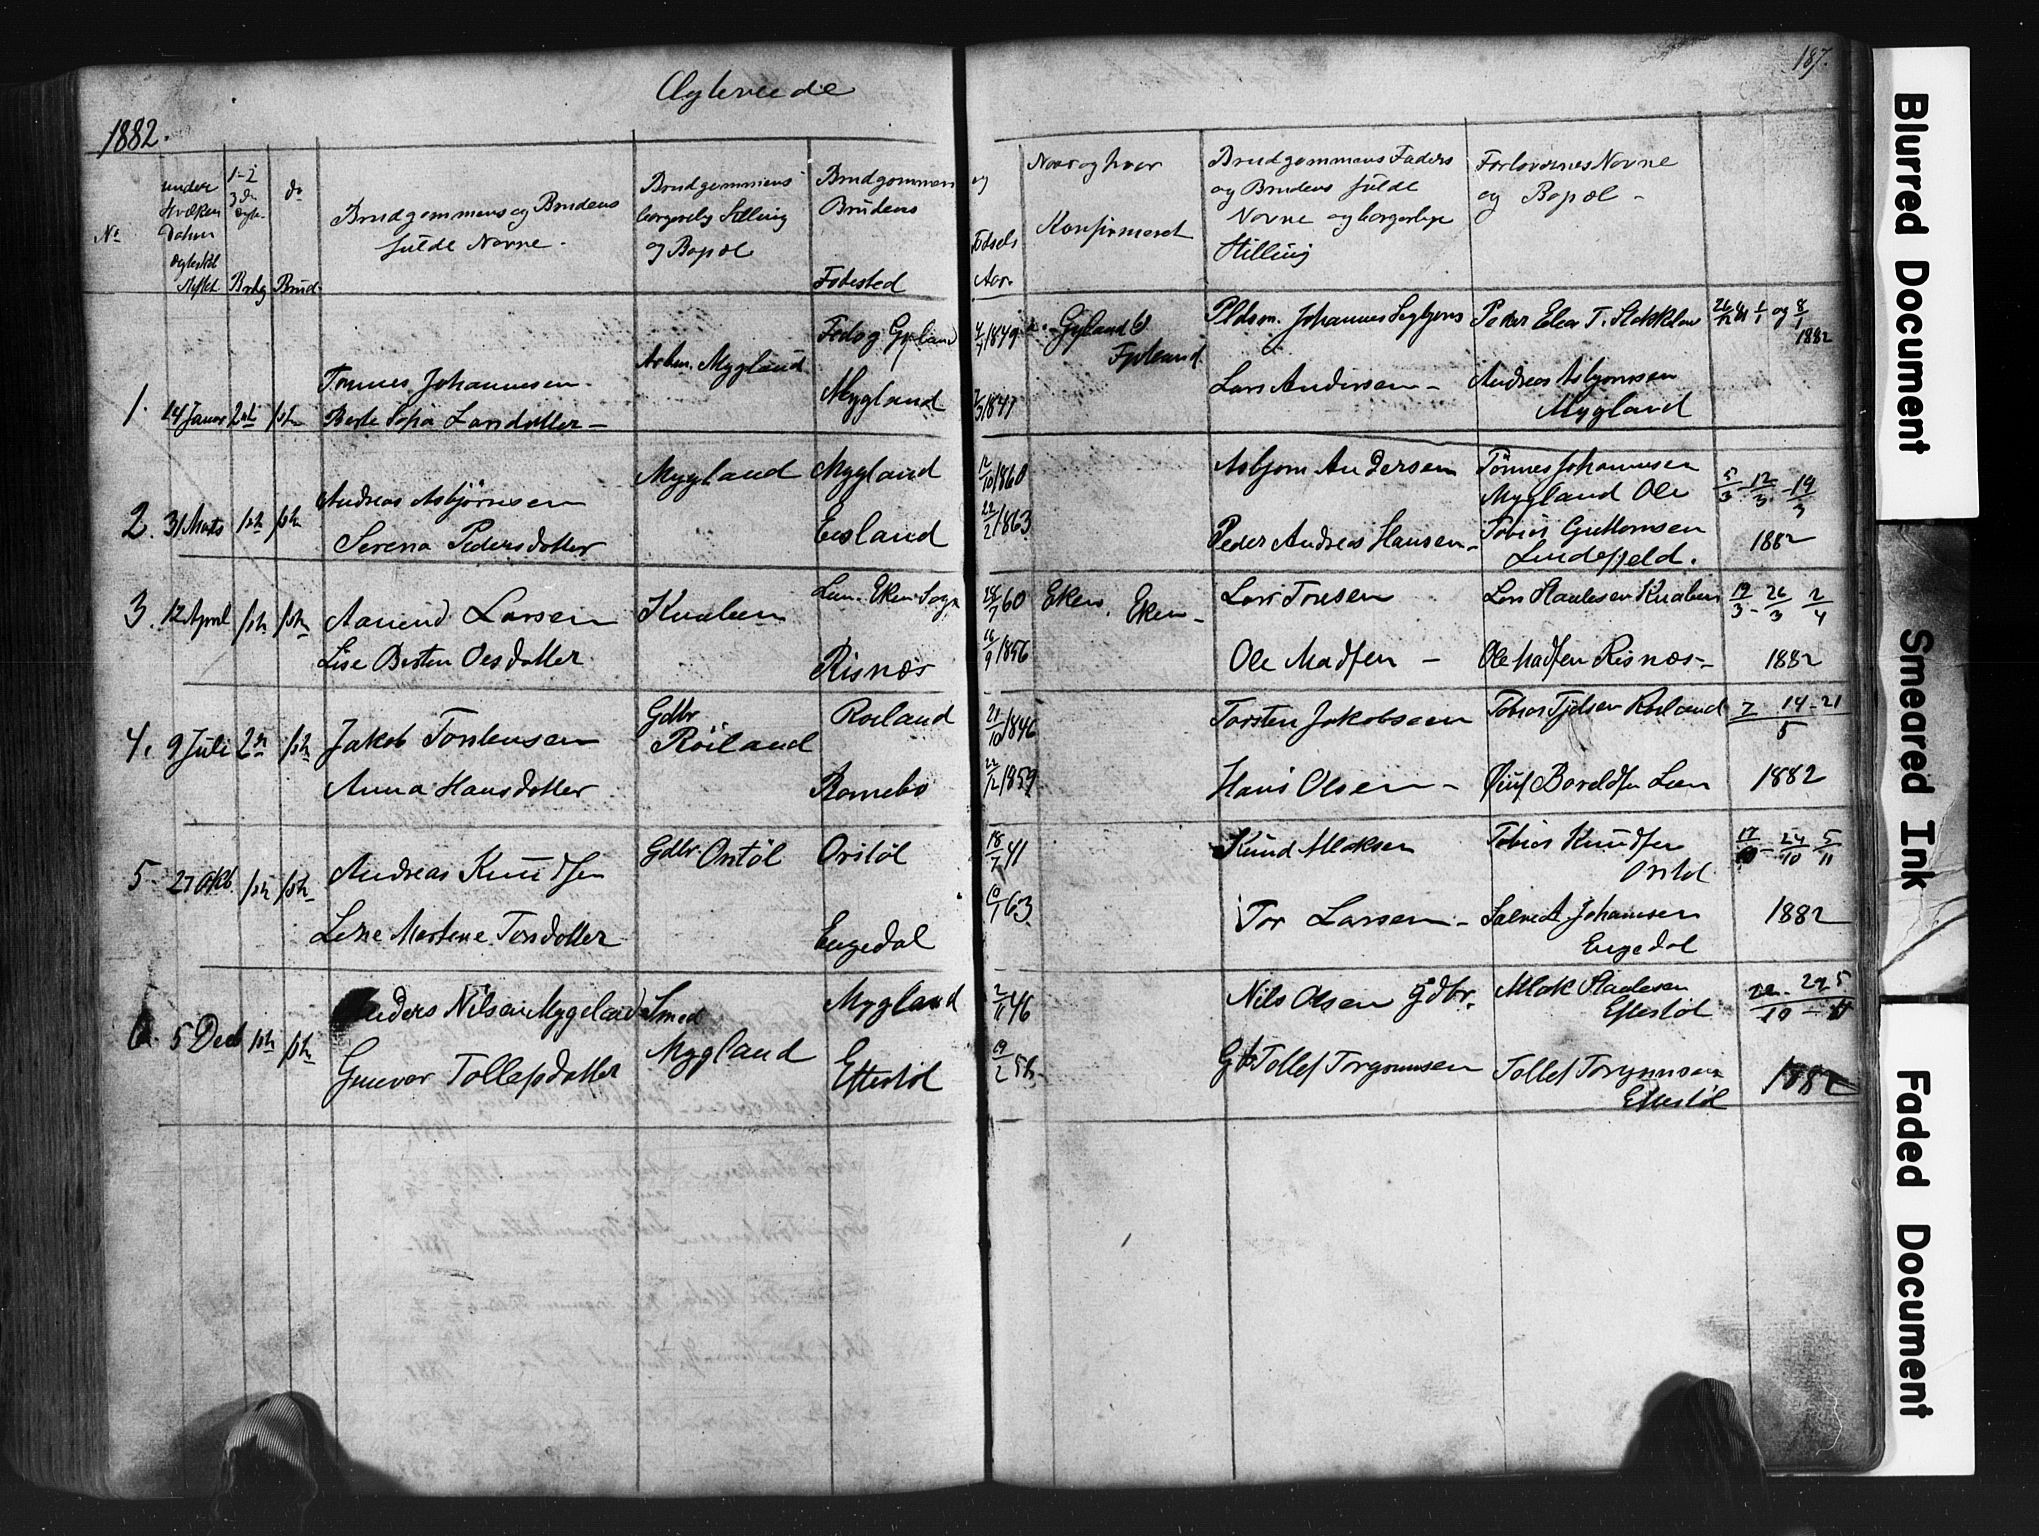 187.
Ægteviede
1882.
No
under Hvilken Datum Ægteskab
1-2 3die Ægte- Brdg
do Brud
Brudgommens og Brudens fulde Navne.
Brudgommens borgerlig Stilling og Bopæl
Brudgommens Brudens Fødested
og Fødsels Aar.
Naar og hvor Konfirmeret
Brudgommens Faders og Brudens fulde Navne og borgerlige Stilling
Forlovernes Navne og Bopæl -
1. 14 Januar 2den 1ste
Tønnes Johannesen
Berte Sofia Larsdatter -
Arbm. Mygland
Feda og Gyland
Mygland
1849
1847
Gyland
Pldsm. Johannes
Lars Andersen -
Peder Elea T.
Andreas Asbjørnsen
Mygland
26/12 81 1/1 og 8/1
1882
2. 31 Marts 1ste 1ste
Andreas Asbjørnsen
Serena Pedersdatter
Mygland
Mygland
Eesland
12/10 1860
22/2 1863
Asbjørn Andersen
Peder Andreas Hansen -
Tönnes Johannesen
Mygland Ole
Tobias Guttormsen
Lindefjeld.
5/3 - 12/3 - 19/3
1882
3. 12 April 1ste 1ste
Aanend Larsen
Lise Berten Oesdatter
Knaben
Eken Sogn
Risnæs
60
16/9 1856
Eken. Eken -
Lars Tonsen
Ole Madsen -
Lars Staalesen Knaben
Ole Madsen Risnæs -
19/3 - 26/3 2/4
1882
4. 9 Juli 2den 1ste
Jakob Torstensen
Anna Hansdatter
Gdbr Röiland
Roiland
Romebo
21/10 1846
22/12 1859
Torsten Jakobsen
Hans Olsen -
Tobias Roiland
Lien
7 14 - 21/5
1882
5 27 Oktb. 1ste 1ste
Andreas Knudsen
Lene Martene Torsdatter
Gdbr Ovstöl
Oristöl
Engedal
18/7 41
6/1 63
Knud Alaksen
Tor Larsen -
Tobias Knudsen
Salve A Johansen
Engedal
17/10 - 24/10 5/11
1882
6. 5 Decb 1ste 1ste
Anders Nilsen Mygeland
Gunvor Tollefsdatter
Smed
Mygland
Mygland
Eftestöl
2/11 46
19/2 58
Nils Olsen Gdbr.
Gb Tollef Torgrimsen
Alak Staalesen
Eftestöl
Tollef Torgrimsen
Eftestöl
22 - 29/10 - 5/11
1882
Blurred Document
Smeared Ink
Faded Document